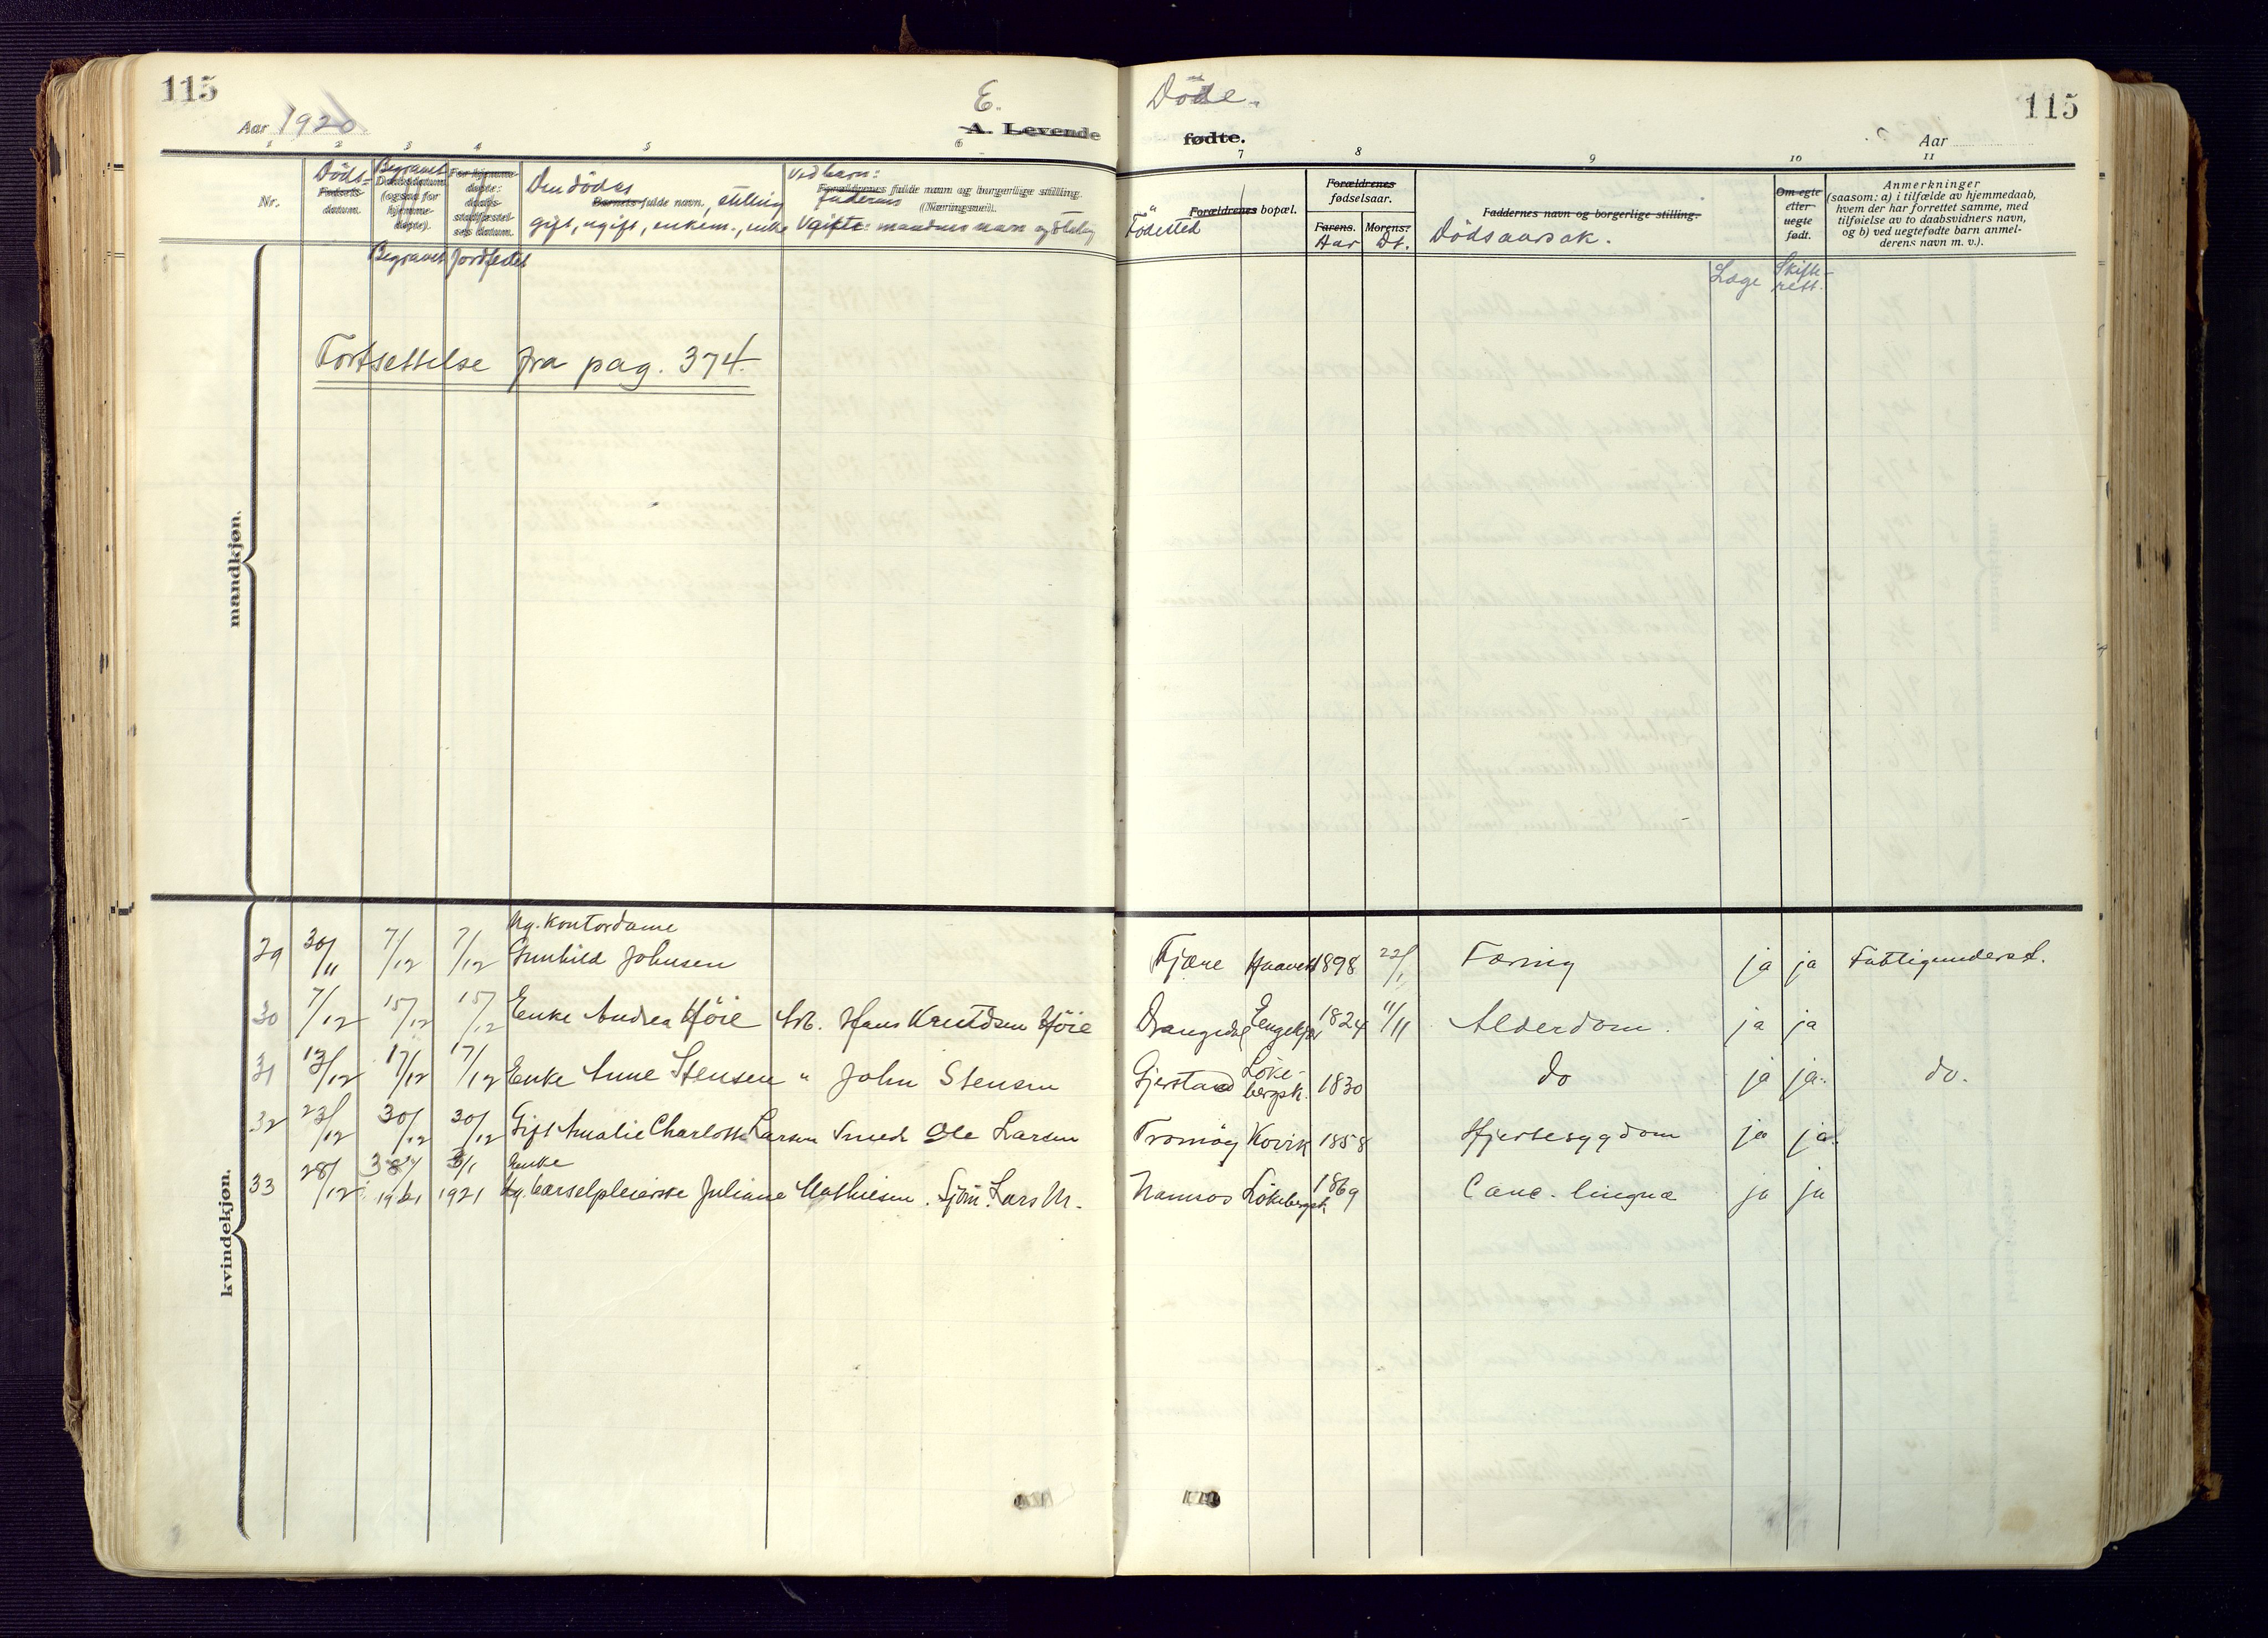 115
115
Aar 1920
E. Døde.
A. Levende fødte.
Aar
1 2 3 4 5 6 7 8 9 10 11
Nr.
Döds-
Fødsels-
datum.
Begravet
Daabsdatum
(ogsaa for
hjemme-
døpte).
For hjemme-
døpte:
daabs-
stadfæstel-
ses datum.
Den dödes
Barnets fulde navn, stilling
gift, ugift, enkem., enke
Ved barn:
Forældrenes fulde navn og borgerlige stilling.
faderens
(Næringsvei).
Vgifte: mandens navn og Stilling
Forældrenes bopæl.
Födested
Forældrenes
fødselsaar.
Farens. Morens.
Aar Dt.
Faddernes navn og borgerlige stilling.
Dödsaarsak.
Om egte
eller
uegte
født.
Anmerkninger
(saasom: a) i tilfælde av hjemmedaab,
hvem der har forrettet samme, med
tilføielse av to daabsvidners navn,
og b) ved uegtefødte barn anmel-
derens navn m. v.).
Begravet Jordfestet
Læge Skifte-
rett.
Fortsettelse fra pag. 374.
mandkjøn.
kvindekjøn.
Ug. Kontordame
29 30/11 7/12 7/12 Gunhild Johnsen Fjære 1898 22/1 Tæring ja ja Fattigunderst.
30 7/12 15/12 15/12 Enke Andrea Höie Arb. Hans Knutdsen Höie Drangedal 1824 11/11 Alderdom. ja ja
31 13/12 17/12 17/12 Enke Anne Stensen " John Stensen Gjerstad Löke-
bergsk. 1830 do ja ja. do.
32 23/12 30/12 30/12 Gift Amalie Charlotte Larsen Smed Ole Larsen Tromöy Kovik 1858 Hjertesygdom ja ja.
Enke
33 28/12 3/1 1921 3/1 1921 Ug. barselpleierske Juliane Mathiesen. Sjöm. Lars M. Namsos Lökebergsk. 1869 Canc. lingua ja ja